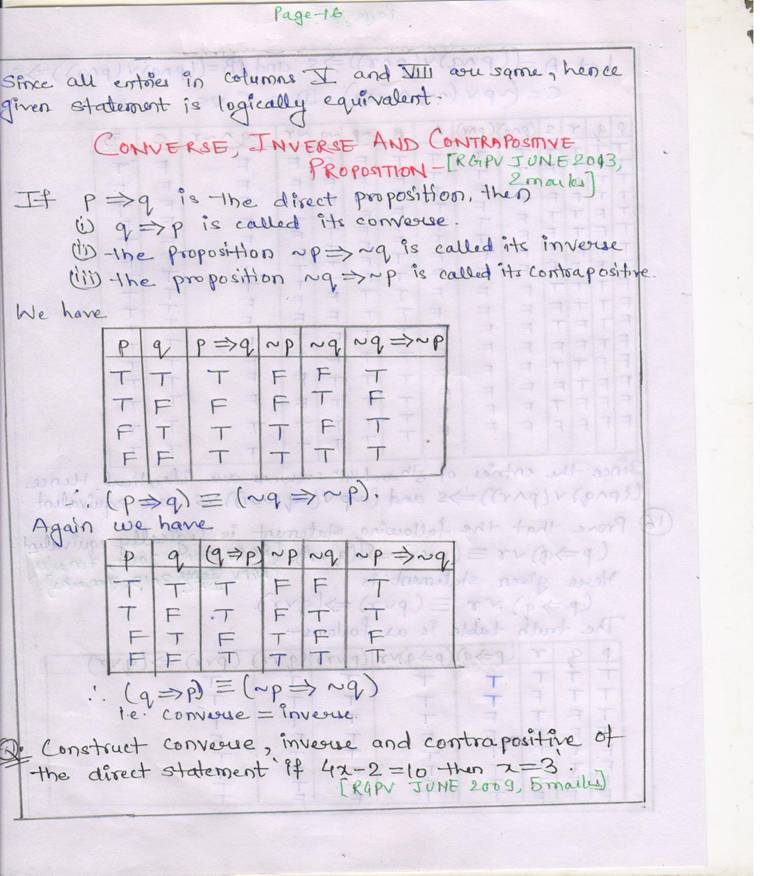 Page-16
Since all entries in columns V and VIII are same, hence
given statement is logically equivalent.
CONVERSE, INVERSE AND CONTRAPOSITIVE
PROPOSITION - [RGPV JUNE 2013,
2 marks]
If p ⇒ q is the direct proposition, then
(i) q ⇒ p is called its converse.
(ii) the proposition ~p ⇒ ~q is called its inverse
(iii) the proposition ~q ⇒ ~p is called its contrapositive.
We have
p q p ⇒ q ~p ~q ~q ⇒ ~p
T T T F F T
T F F F T F
F T T T F T
F F T T T T
∴ (p ⇒ q) ≡ (~q ⇒ ~p).
Again we have
p q (q ⇒ p) ~p ~q ~p ⇒ ~q
T T T F F T
T F T F T T
F T F T F F
F F T T T T
∴ (q ⇒ p) ≡ (~p ⇒ ~q)
i.e. converse = inverse
Q. Construct converse, inverse and contrapositive of
the direct statement 'if 4x-2=10 then x=3'.
[RGPV JUNE 2009, 5 marks]